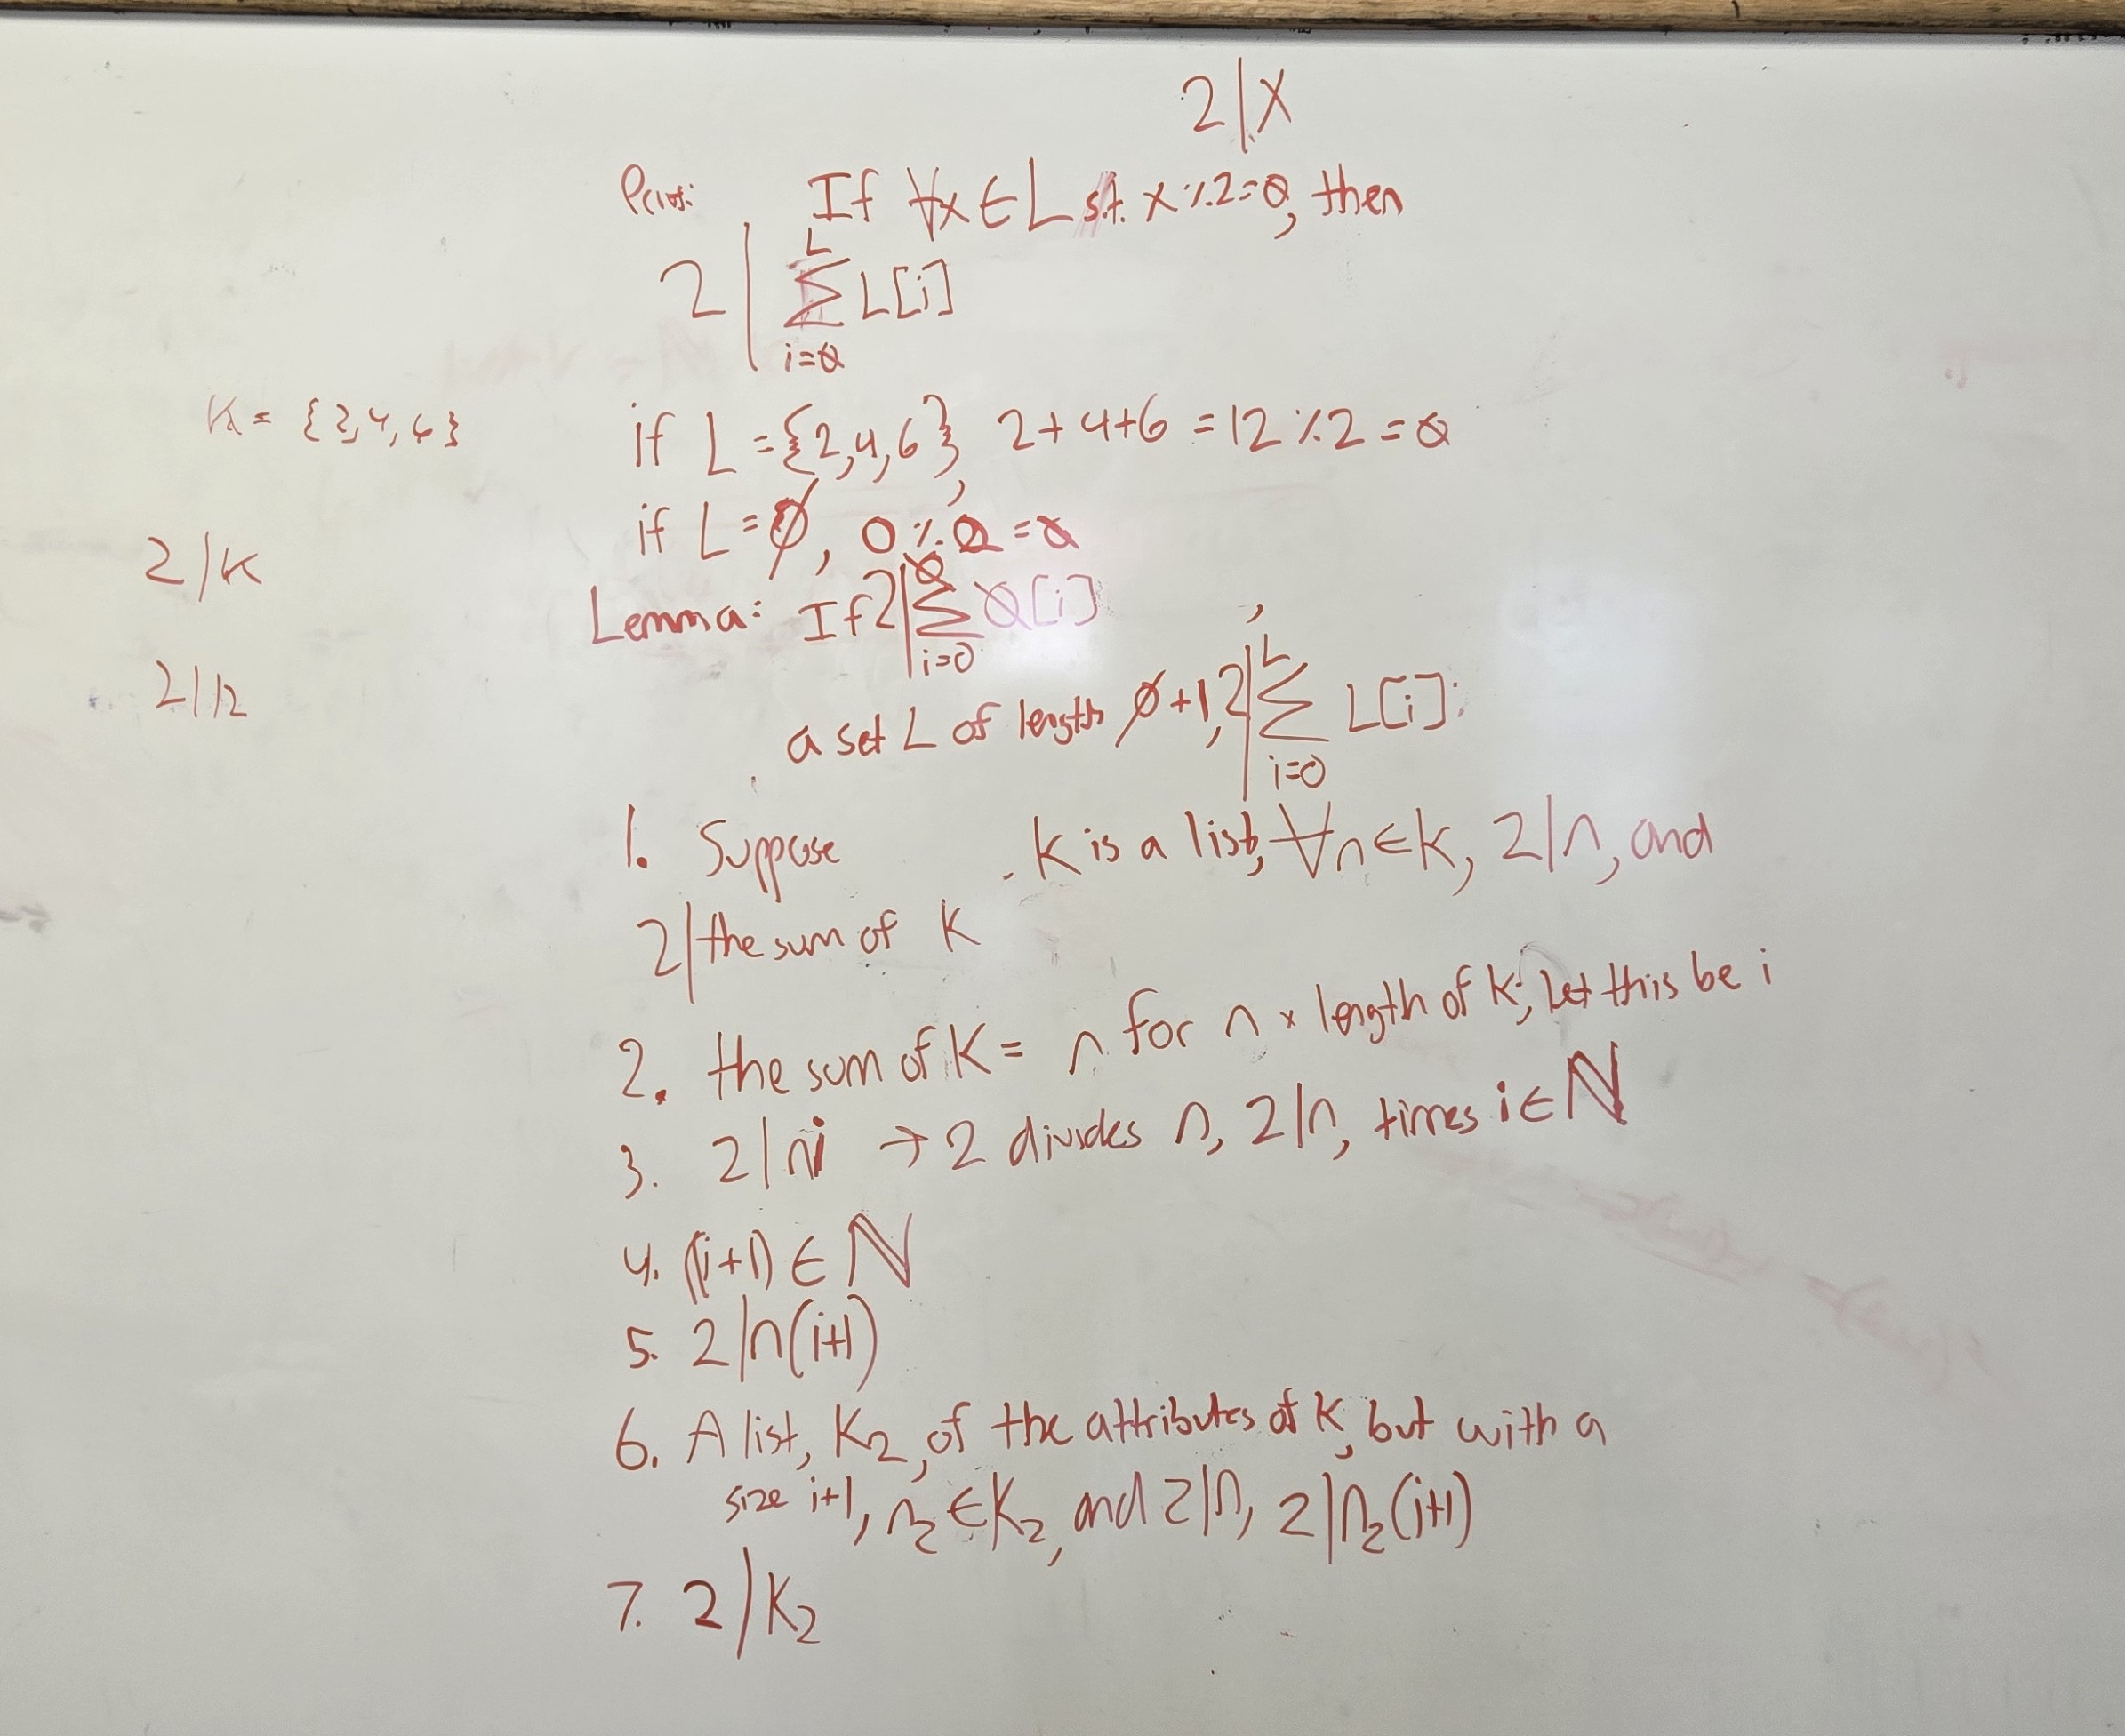 2|X
If ∀x ∈ L s.t. x % 2 = 0, then
2 | L ∑ i=0 L[i]
K = {2,4,6}
if L = {2,4,6}, 2+4+6 = 12 % 2 = 0
if L = ∅, 0 % 2 = 0
2|K
Lemma: If 2 | ∅ ∑ i=0 ∅[i],
2|12
a set L of length ∅+1, 2 | L ∑ i=0 L[i].
1. Suppose K is a list, ∀n ∈ K, 2|n, and
2|the sum of K
2. the sum of K = n for n × length of K; let this be i
3. 2|ni → 2 divides n, 2|n, times i ∈ ℕ
4. (i+1) ∈ ℕ
5. 2|n(i+1)
6. A list, K₂, of the attributes of K, but with a
size i+1, n₂ ∈ K₂, and 2|n, 2|n₂(i+1)
7. 2|K₂